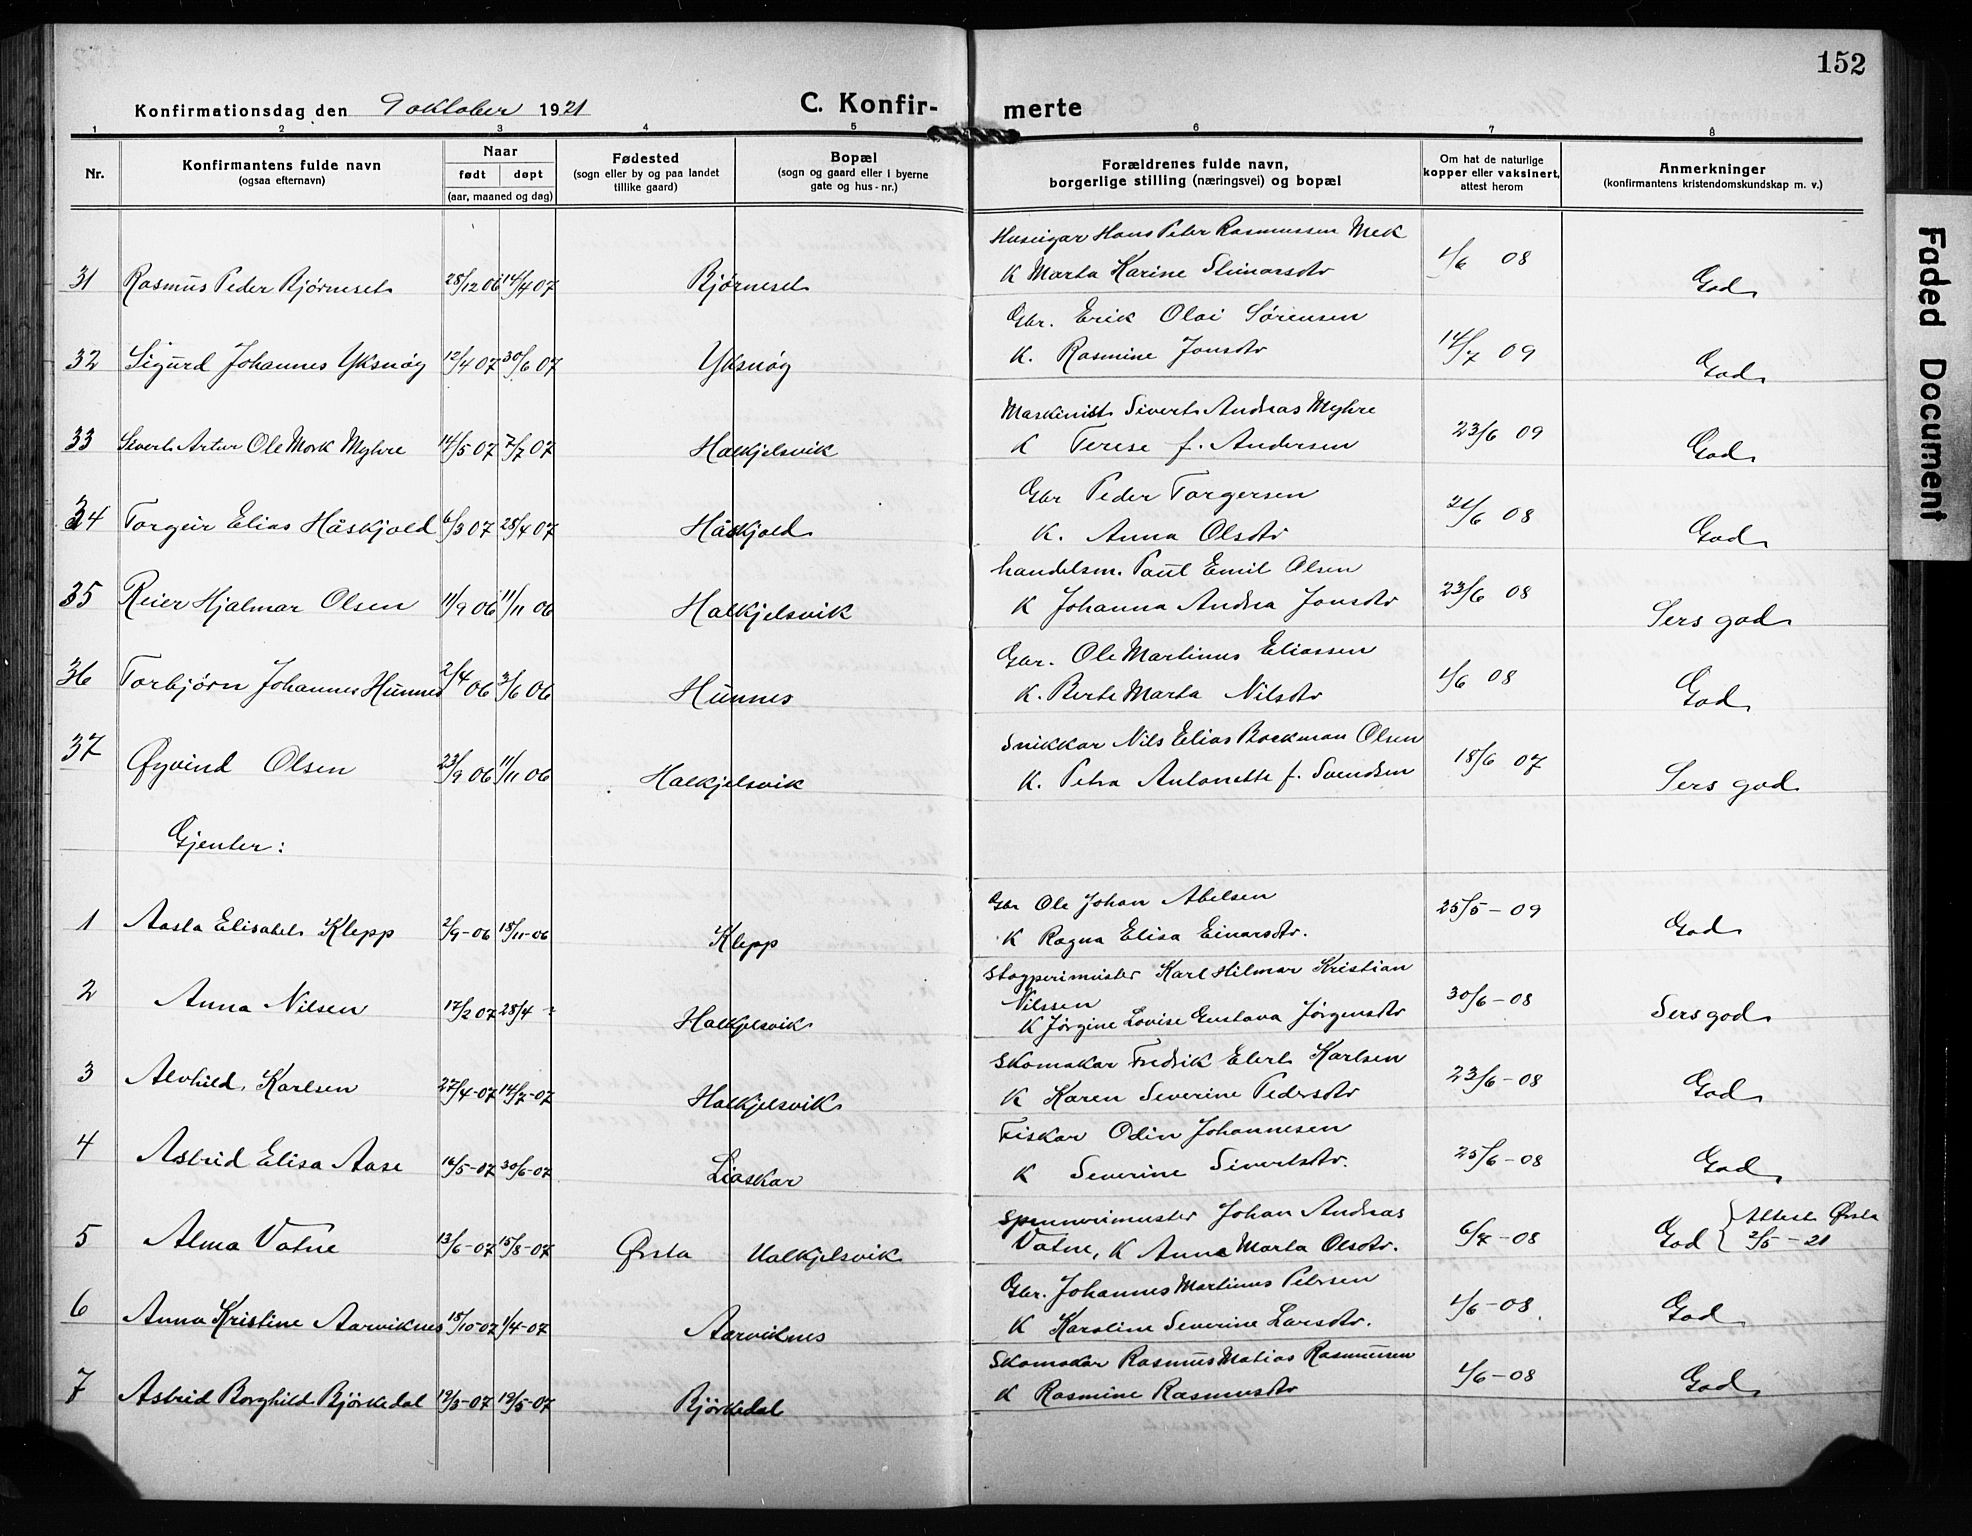 152
Konfirmationsdag den 9 oktober 1921
C. Konfir- merte
1 2 3 4 5 6 7 8
Nr.
Konfirmantens fulde navn
(ogsaa efternavn)
Naar
født døpt
(aar, maaned og dag)
Fødested
(sogn eller by og paa landet
tillike gaard)
Bopæl
(sogn og gaard eller i byerne
gate og hus-nr.)
Forældrenes fulde navn,
borgerlige stilling (næringsvei) og bopæl
Om hat de naturlige
kopper eller vaksinert,
attest herom
Anmerkninger
(konfirmantens kristendomskundskap m. v.)
Huseigar Hans Peter Rasmussen Mek
31 Rasmus Peder Bjørneset 28/12 06 14/4 07 Bjørneset K Marta Karine Steinarsdtr 4/6 08 God
Gbr. Erik Olai Sørensen
32 Sigurd Johannes Yksnøy 12/4 07 30/6 07 Yksnøy K. Rasmine Jonsdtr 14/7 09 God
Maskinist Sivert Andreas Myhre
33 Sivert Artur Ole Mork Myhre 14/5 07 7/7 07 Halkjelsvik K Terese f. Andersen 23/6 09 God
Gbr Peder Torgersen
34 Torgeir Elias Håskjold 6/3 07 28/4 07 Håskjold K. Anna Olsdtr 21/6 08 God
handelsm. Paul Emil Olsen
35 Reier Hjalmar Olsen 11/9 06 11/11 06 Halkjelsvik K Johanna Andrea Jonsdtr 23/6 08 Sers god
Gbr. Ole Martinus Eliassen
36 Torbjørn Johannes Hunnes 2/4 06 3/6 06 Hunnes K. Berte Marta Nilsdtr 4/6 08 God
Snikkar Nils Elias Bockman Olsen
37 Øyvind Olsen 23/9 06 11/11 06 Halkjelsvik K. Petra Antonette f. Svendsen 18/6 07 Sers god
Gjenter:
Gbr Ole Johan Abelsen
1 Aasta Elisabet Klepp 2/9-06 18/11-06 Klepp K Ragna Elisa Einarsdtr. 25/5-09 God
Karl Hilmar Kristian
Nilssen
2 Anna Nilsen 17/2 07 28/4 - Halkjelsvik K Jørgine Lovise Gustava Jørgensdtr 30/6-08 Sers god
Skomakar Fredrik Elert Karlsen
3 Alvhild Karlsen 27/4-07 14/7-07 Halkjelsvik K Karen Severine Pedersdtr 23/6-08 God
Fiskar Odin Johannesen
4 Astrid Elisa Aase 16/5-07 30/6-07 Liaskar K Severine Sivertsdtr. 25/6-08 God
Spinnerimeister Johan Andreas
5 Alma Vatne 13/6-07 15/8-07 Ørsta Halkjelsvik Vatne, K Anna Marta Olsdtr. 6/4-08 God { Attest Ørsta
2/5-21
Gbr. Johannes Martinus Petersen
6 Anna Kristine Aarviknes 18/10-07 1/4-07 Aarviknes K Karoline Severine Larsdtr. 4/6-08 God
Skomakar Rasmus Matias Rasmussen
7 Astrid Borghild Bjørkedal 19/3-07 19/5-07 Bjørkedal K Rasmine Rasmusdtr 4/6-08 God
Faded Document